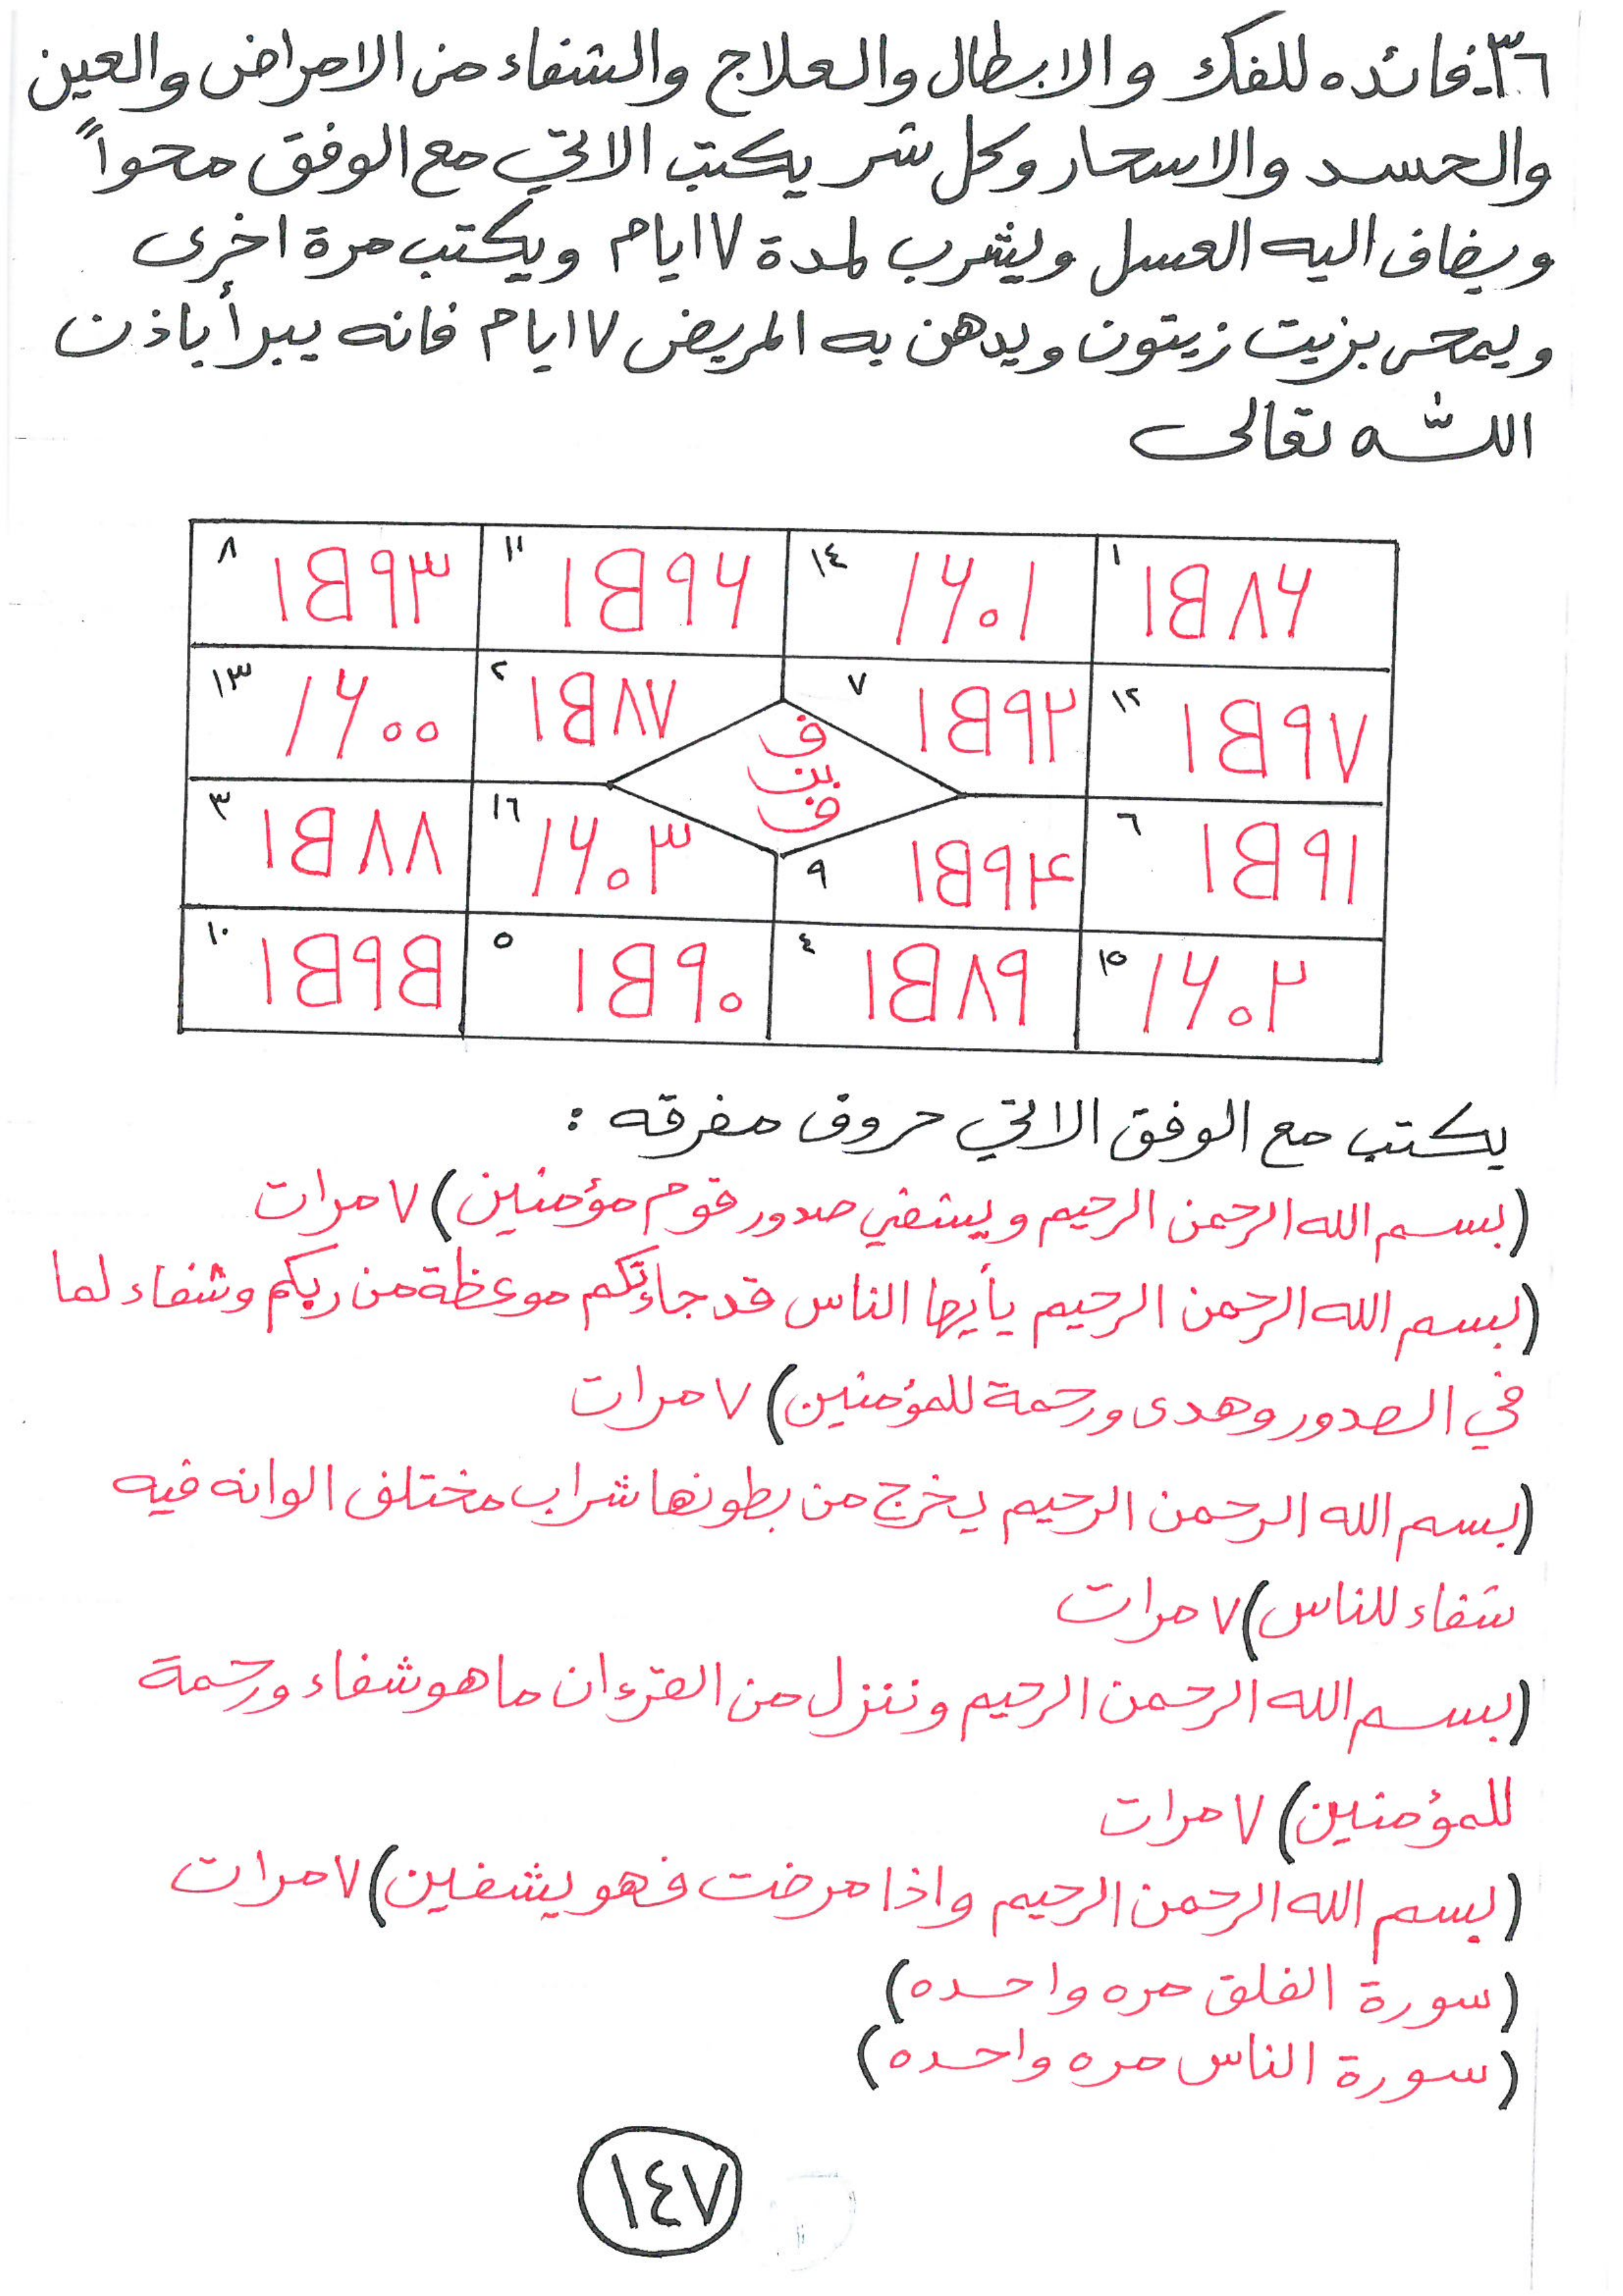 ٣٦-فائده للفك والابطال والعلاج والشفاء من الامراض والعين
والحسد والاسحار وكل شر يكتب الاتي مع الوفق محواً
ويضاف اليه العسل ويشرب لمدة ٧ ايام ويكتب مرة اخرى
ويمحى بزيت زيتون ويدهن به المريض ٧ ايام فانه يبرأ باذن
الله تعالى
١ ١٥٨٦ ١٤ ١٦٠١ ١١ ١٥٩٦ ٨ ١٥٩٣
١٢ ١٥٩٧ ٧ ١٥٩٢ ٢ ١٥٨٧ ١٣ ١٦٠٠
ف
بن
ف
٦ ١٥٩١ ٩ ١٥٩٤ ١٦ ١٦٠٣ ٣ ١٥٨٨
١٥ ١٦٠٢ ٤ ١٥٨٩ ٥ ١٥٩٠ ١٠ ١٥٩٥
يكتب مع الوفق الاتي حروف مفرقه :
(بسم الله الرحمن الرحيم ويشفي صدور قوم مؤمنين) ٧ مرات
(بسم الله الرحمن الرحيم يأيها الناس قد جاءتكم موعظة من ربكم وشفاء لما
في الصدور وهدى ورحمة للمؤمنين) ٧ مرات
(بسم الله الرحمن الرحيم يخرج من بطونها شراب مختلف الوانه فيه
شفاء للناس) ٧ مرات
(بسم الله الرحمن الرحيم وننزل من القرءان ما هو شفاء ورحمة
للمؤمنين) ٧ مرات
(بسم الله الرحمن الرحيم واذا مرضت فهو يشفين) ٧ مرات
(سورة الفلق مره واحده)
(سورة الناس مره واحده)
١٤٧